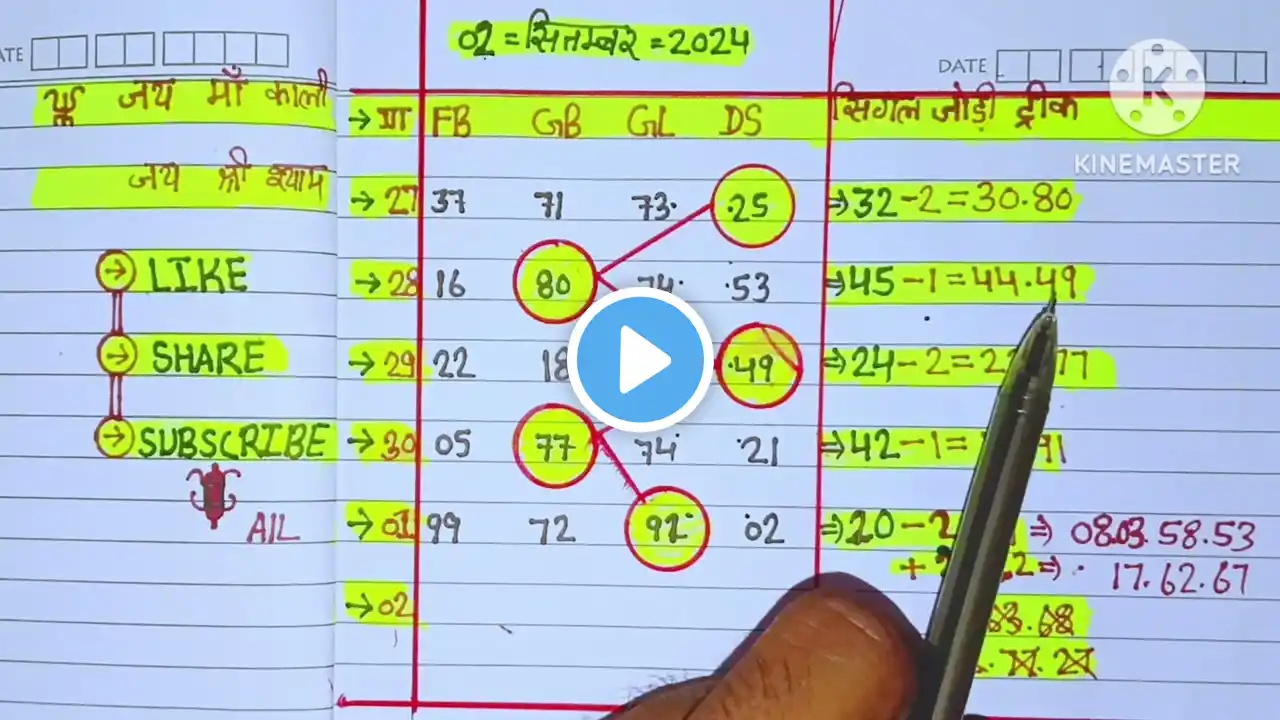 02 = सितम्बर = 2024
DATE
DATE
KINEMASTER
जय माँ काली
जय श्री श्याम
→ LIKE
→ SHARE
→ SUBSCRIBE
AIL
→ FB GB GL DS सिगल जोड़ी ट्रीक
→ 27 37 71 73. .25 ⇒ 32 - 2 = 30.80
→ 28 16 80 74. .53 ⇒ 45 - 1 = 44.49
→ 29 22 18 .49 ⇒ 24 - 2 = 77
→ 30 05 77 74 .21 ⇒ 42 - 1 = 91
→ 01 99 72 92 .02 ⇒ 20 - 2 ⇒ 08.03.58.53
+ 2 ⇒ 17.62.67
→ 02
63.68
77.27